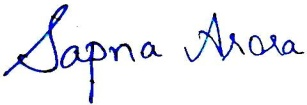 Sapna Arora